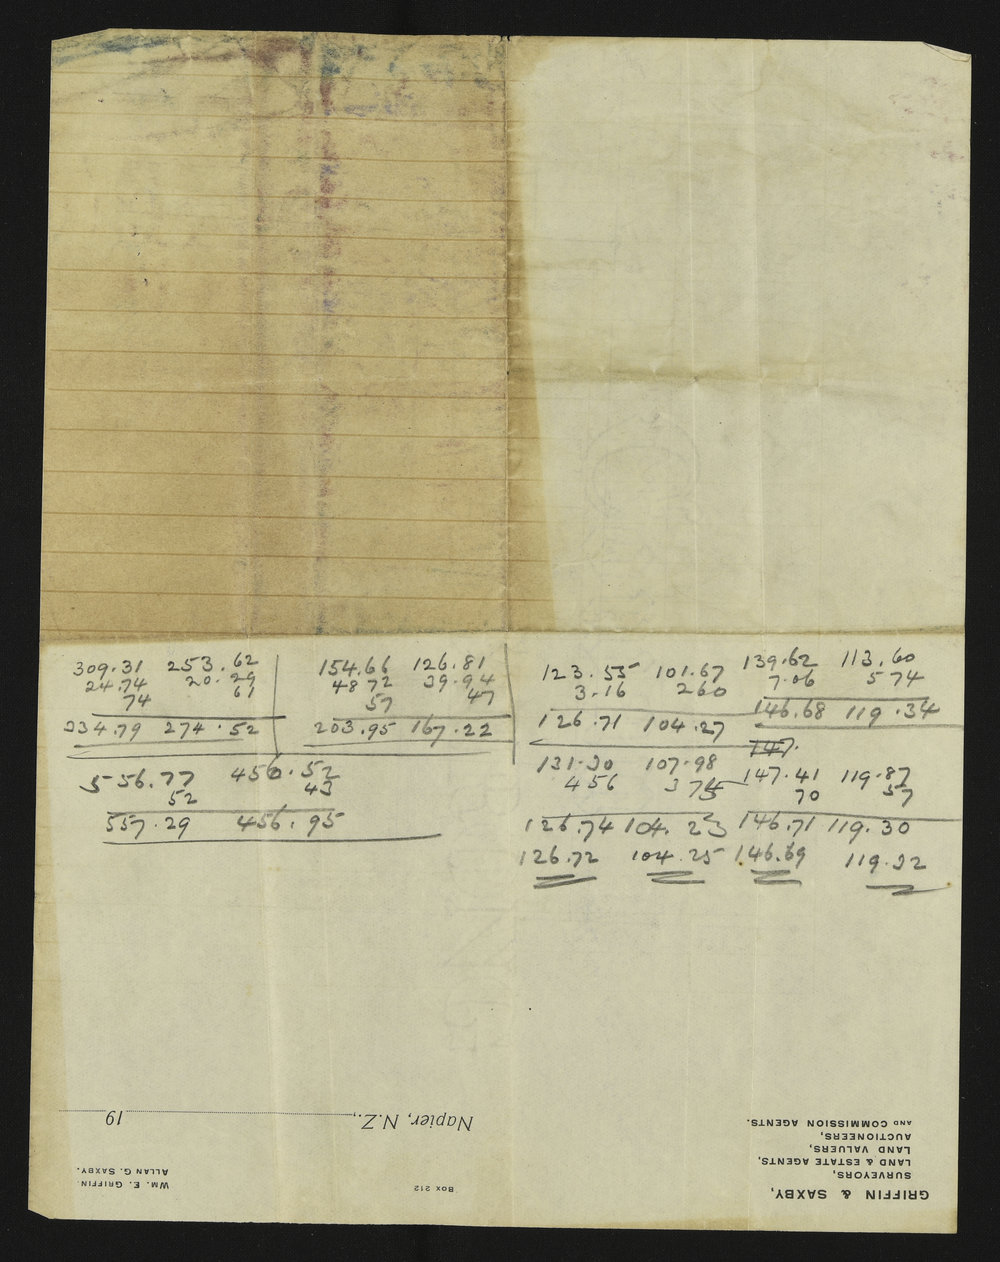 309.31 253.62
24.74 20.29
74 61
334.79 274.52
154.66 126.81
48 72 39.94
57 47
203.95 167.22
556.77 456.52
52 43
557.29 456.95
123.55 101.67
3.16 2 60
126.71 104.27
139.62 113.60
7.06 5 74
146.68 119.34
147.
131.30 107.98
4 56 3 75
126.74 104.23
147.41 119.87
70 57
146.71 119.30
126.72 104.25 146.69 119.32
GRIFFIN & SAXBY,
SURVEYORS,
LAND & ESTATE AGENTS,
LAND VALUERS,
AUCTIONEERS,
AND COMMISSION AGENTS.
BOX 212
WM. E. GRIFFIN.
ALLAN G. SAXBY.
Napier, N.Z., 19